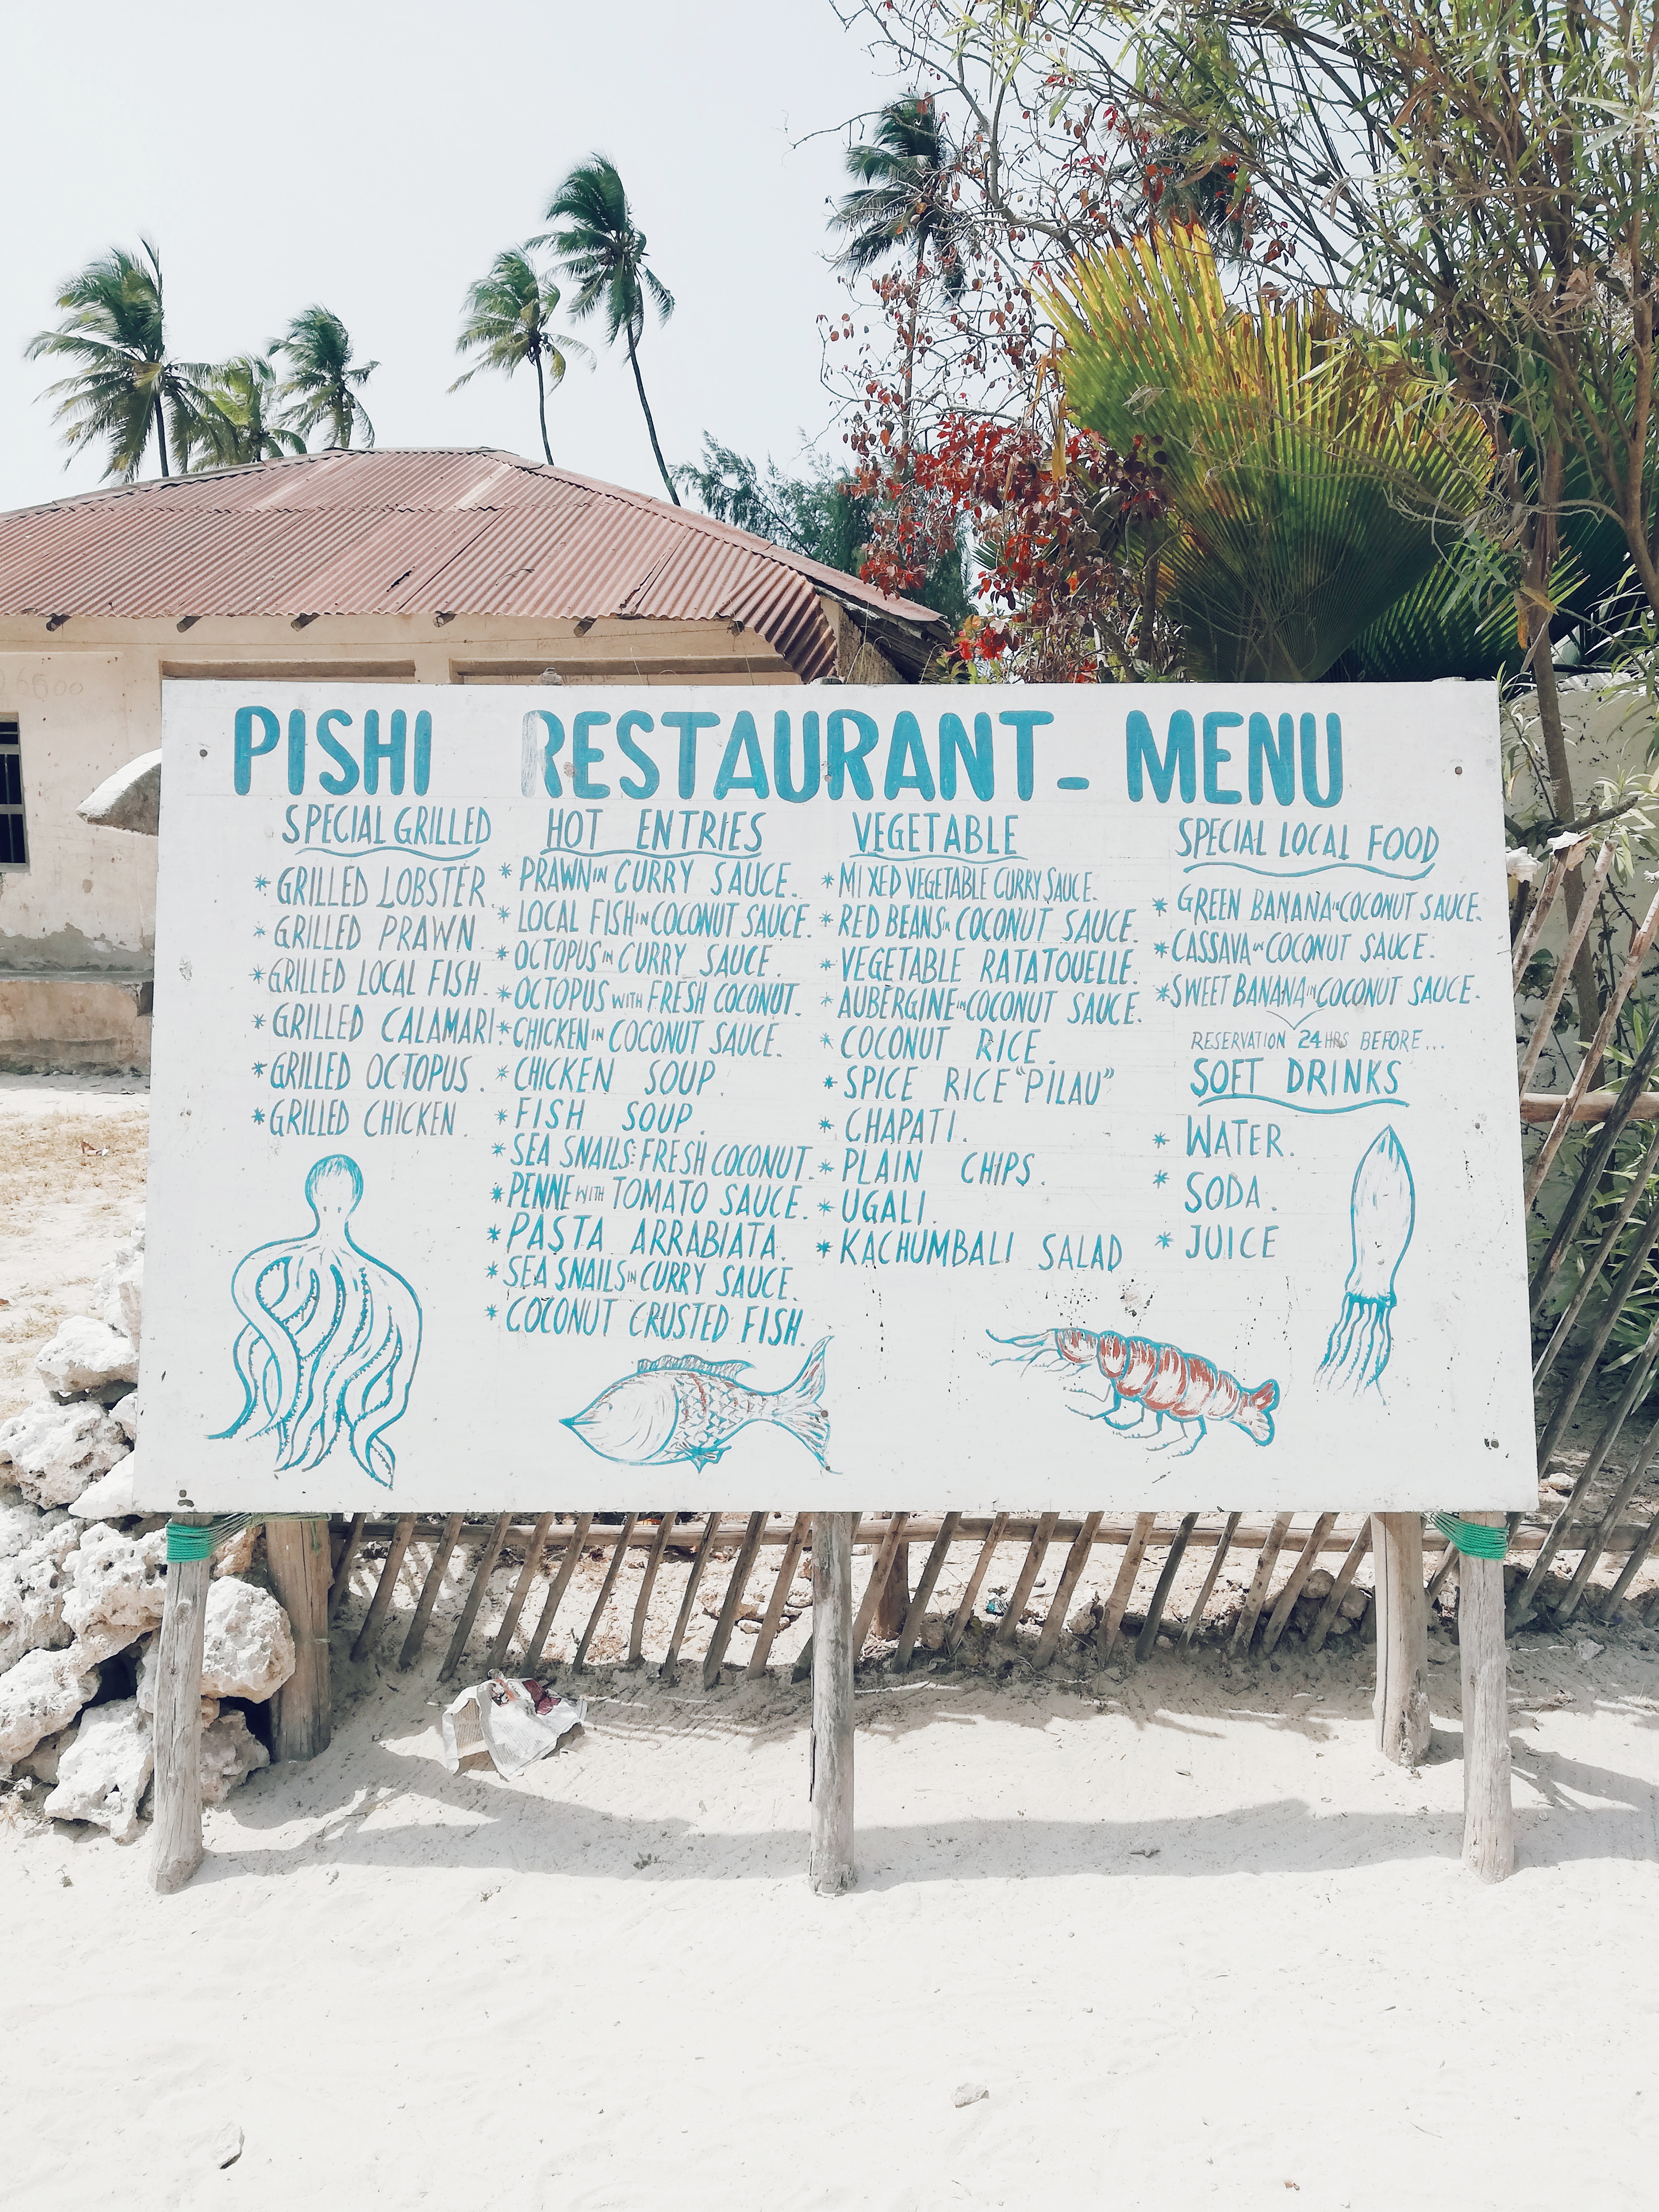 PISHI RESTAURANT - MENU
SPECIAL GRILLED
* GRILLED LOBSTER.
* GRILLED PRAWN.
* GRILLED LOCAL FISH.
* GRILLED CALAMARI.
* GRILLED OCTOPUS.
* GRILLED CHICKEN.
HOT ENTRIES
* PRAWN IN CURRY SAUCE.
* LOCAL FISH IN COCONUT SAUCE.
* OCTOPUS IN CURRY SAUCE.
* OCTOPUS WITH FRESH COCONUT.
* CHICKEN IN COCONUT SAUCE.
* CHICKEN SOUP.
* FISH SOUP.
* SEA SNAILS: FRESH COCONUT.
* PENNE WITH TOMATO SAUCE.
* PASTA ARRABIATA.
* SEA SNAILS IN CURRY SAUCE.
* COCONUT CRUSTED FISH.
VEGETABLE
* MIXED VEGETABLE CURRY SAUCE.
* RED BEANS IN COCONUT SAUCE.
* VEGETABLE RATATOUELLE.
* AUBERGINE IN COCONUT SAUCE.
* COCONUT RICE.
* SPICE RICE "PILAU"
* CHAPATI.
* PLAIN CHIPS.
* UGALI.
* KACHUMBALI SALAD
SPECIAL LOCAL FOOD
* GREEN BANANA IN COCONUT SAUCE.
* CASSAVA IN COCONUT SAUCE.
* SWEET BANANA IN COCONUT SAUCE.
RESERVATION 24HRS BEFORE...
SOFT DRINKS
* WATER.
* SODA.
* JUICE